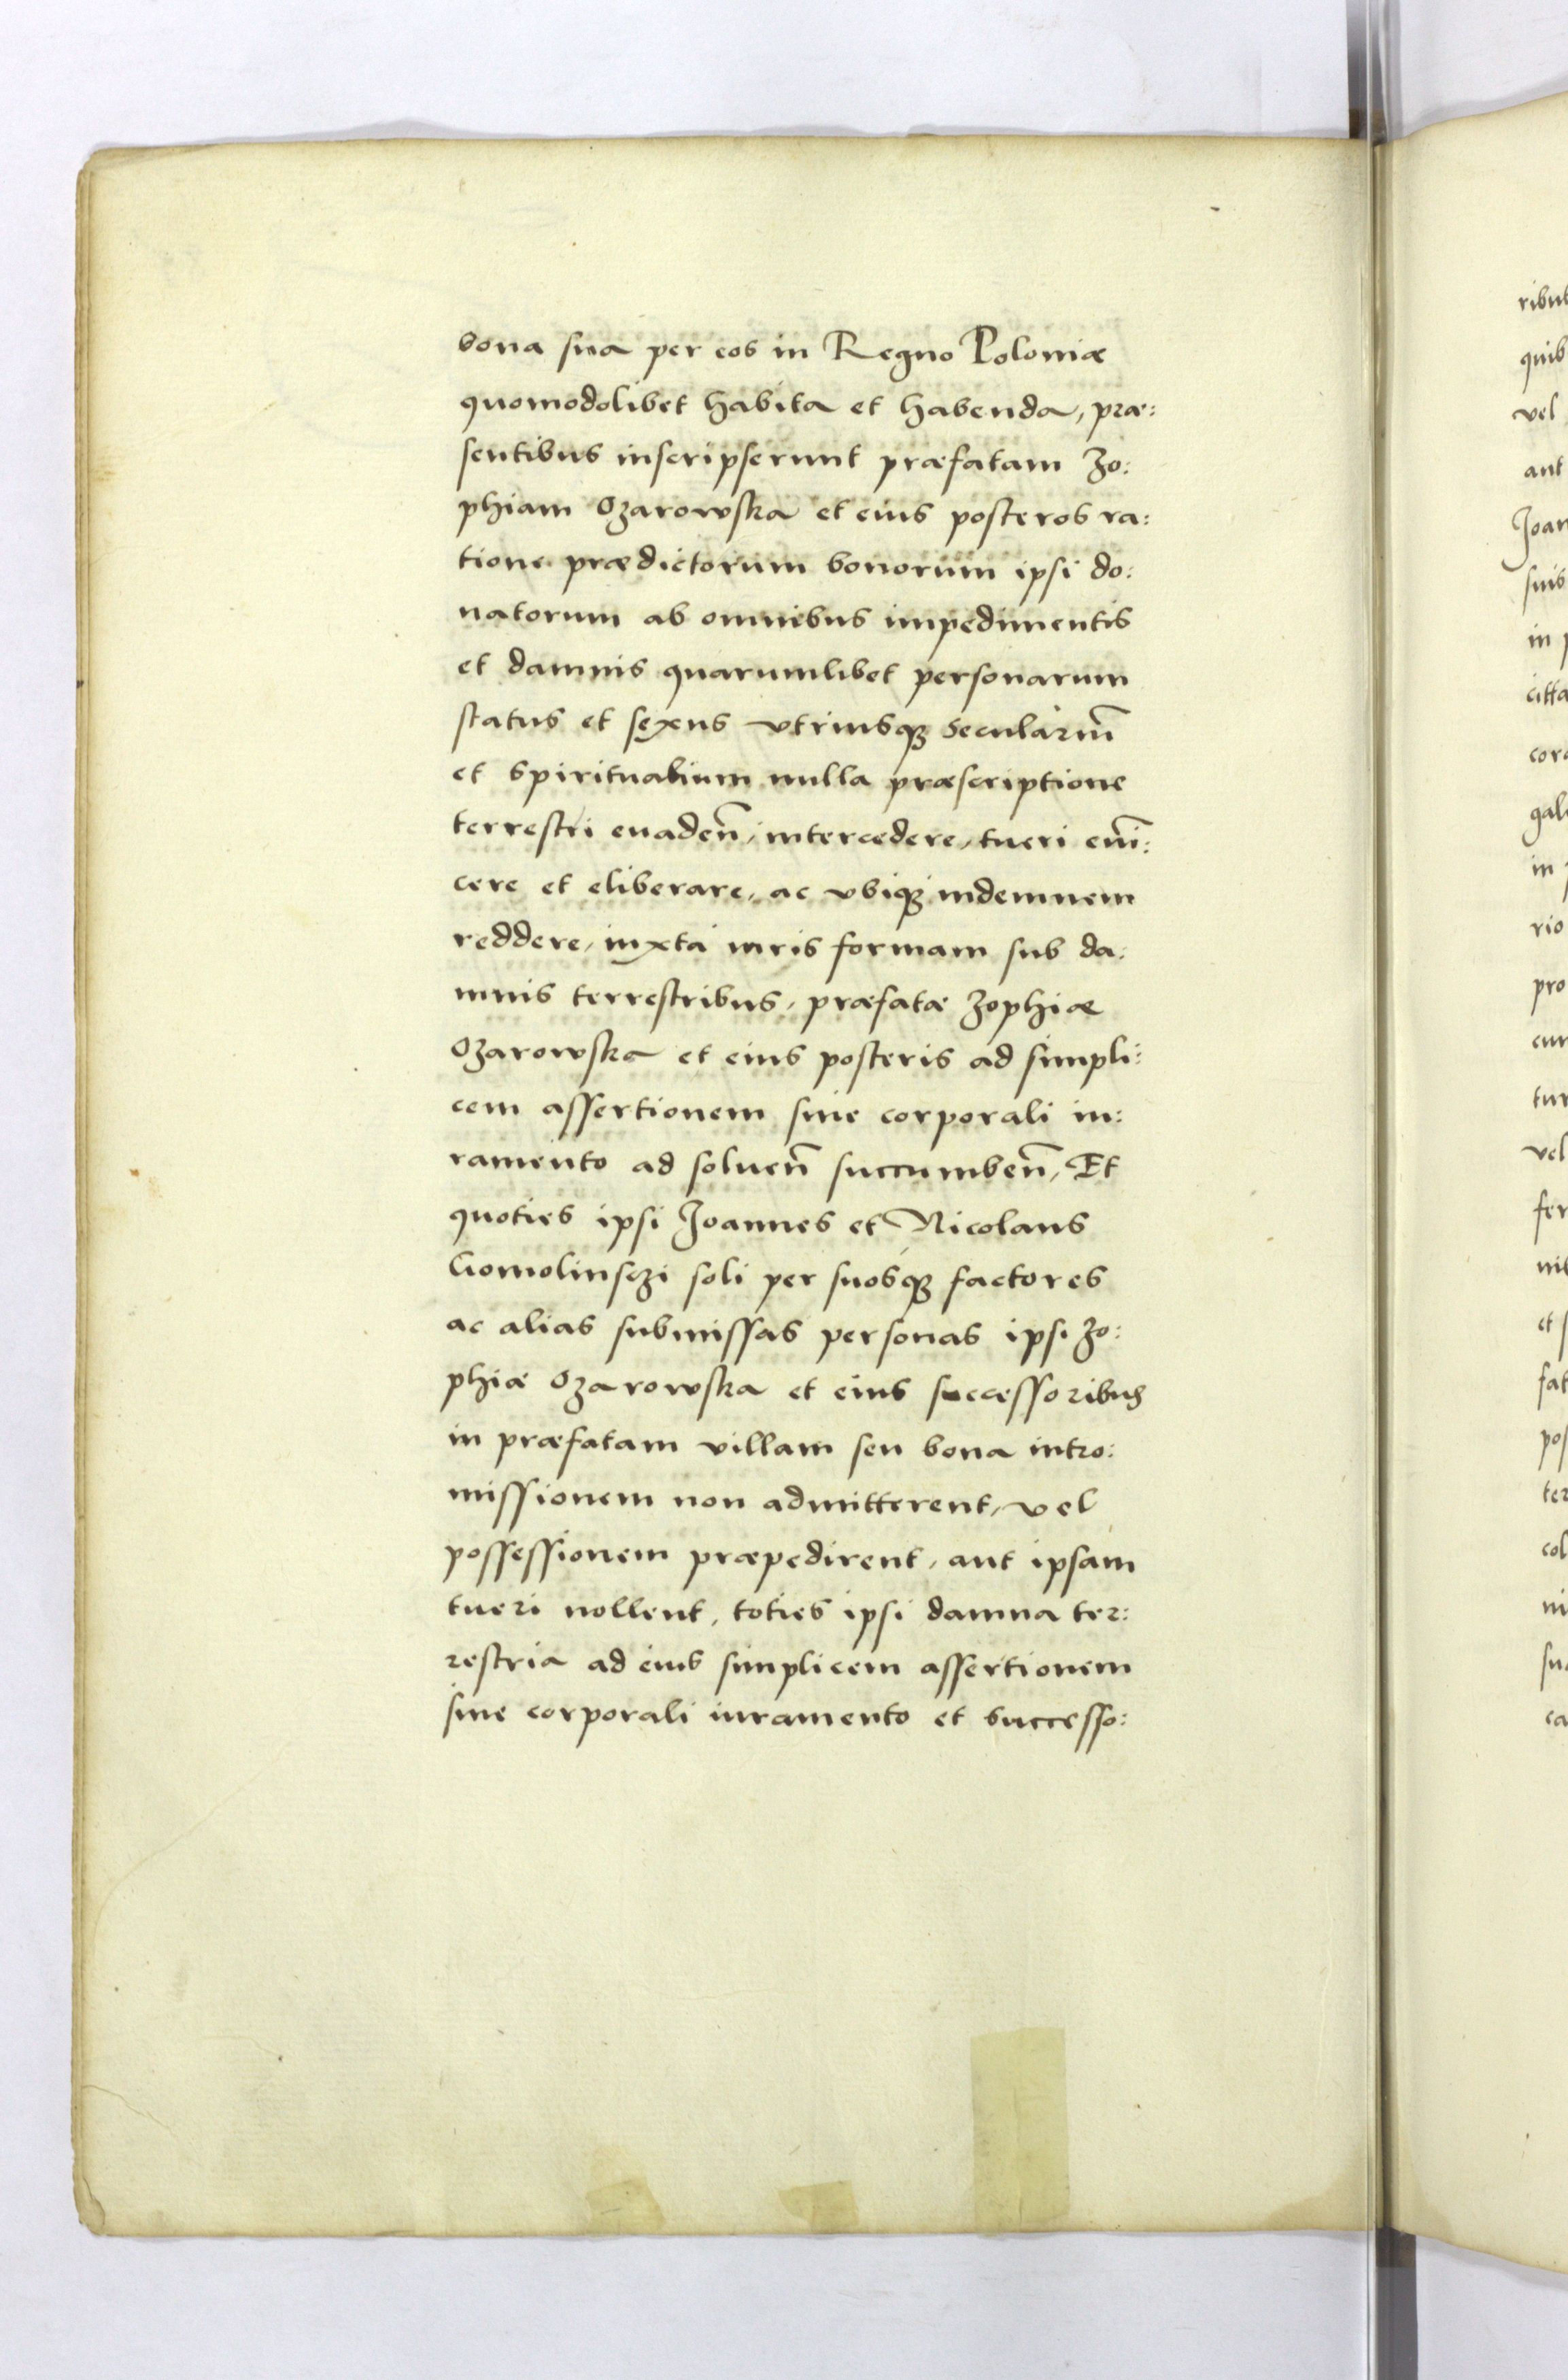 bona sua per eos in Regno Poloniæ
quomodolibet habita et habenda, præ:
sentibus inscripserunt præfatam Zo:
phiam Ozarowska et eius posteros ra:
tione prædictorum bonorum ipsi do:
natorum ab omnibus impedimentis
et damnis quarumlibet personarum
status et sexus vtriusqꝫ Seculariū
et spiritualium nulla præscriptione
terrestri euadeñ, intercedere, tueri euī:
cere et eliberare, ac vbiqꝫ indemnem
reddere, iuxta iuris formam sub da:
mnis terrestribus, præfatæ Zophiæ
Ozarowska et eius posteris ad simpli:
cem assertionem sine corporali iu:
ramento ad soluen̄ succumben̄, Et
quoties ipsi Joannes et Nicolaus
Gomolinsczi soli per suosqꝫ factores
ac alias submissas personas ipsi Zo:
phiæ Ozarowska et eius successoribus
in præfatam villam seu bona intro:
missionem non admitterent, vel
possessionem præpedirent, aut ipsam
tueri nollent, toties ipsi damna ter:
restria ad eius simplicem assertionem
sine corporali iuramento et successo:
ribus
quib
vel
aut
Joan
suis
in p
citta
cora
gal
in p
rio
pro
cur
tur
vel
fer
nib
et s
fat
pos
ter
col
ni
suc
ca